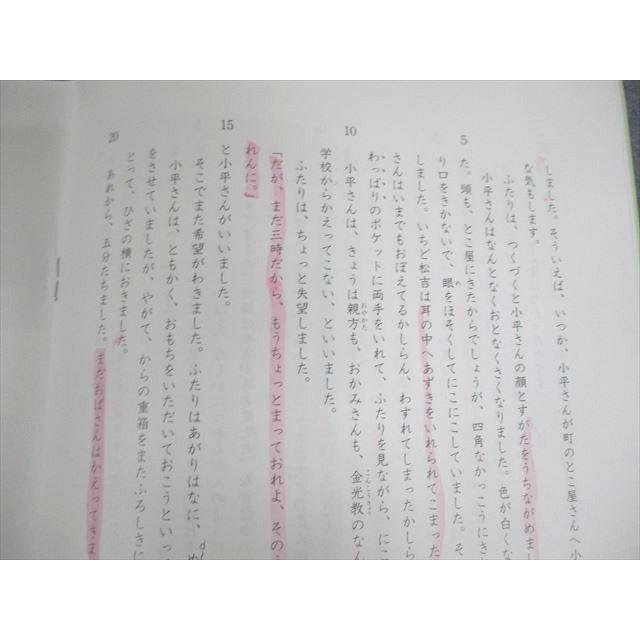 しました。そういえば、いつか、小平さんが町のとこ屋さんへ小
な気もします。
ふたりは、つくづくと小平さんの顔とすがたをうちながめまし
小平さんはなんとなくおとなくさくなりました。色が白くな
5
た。頭も、とこ屋にきたからでしょうが、四角なかっこうにき
り口をきかないで、眼をほそくしてにこにこしていました。そ
しました。いちど松吉は耳の中へあずきをいれられてこまった
さんはいまでもおぼえてるかしらん、わすれてしまったかしら
わっぱりのポケットに両手をいれて、ふたりを見ながら、にこ
10
小平さんは、きょうは親方も、おかみさんも、金光教のなん
おやかた
こんこうきょう
学校からかえってこない、といいました。
ふたりは、ちょっと失望しました。
「だが、まだ三時だから、もうちょっとまっておれよ、そのう
れんに。」
15
と小平さんがいいました。
そこでまた希望がわきました。ふたりはあがりはなに、
小平さんは、ともかく、おもちをいただいておこうといっ
をさせていましたが、やがて、からの重箱をまたふろしきに
とって、ひざの横におきました。
20
あれから、五分たちました。まだおばさんはかえってきま